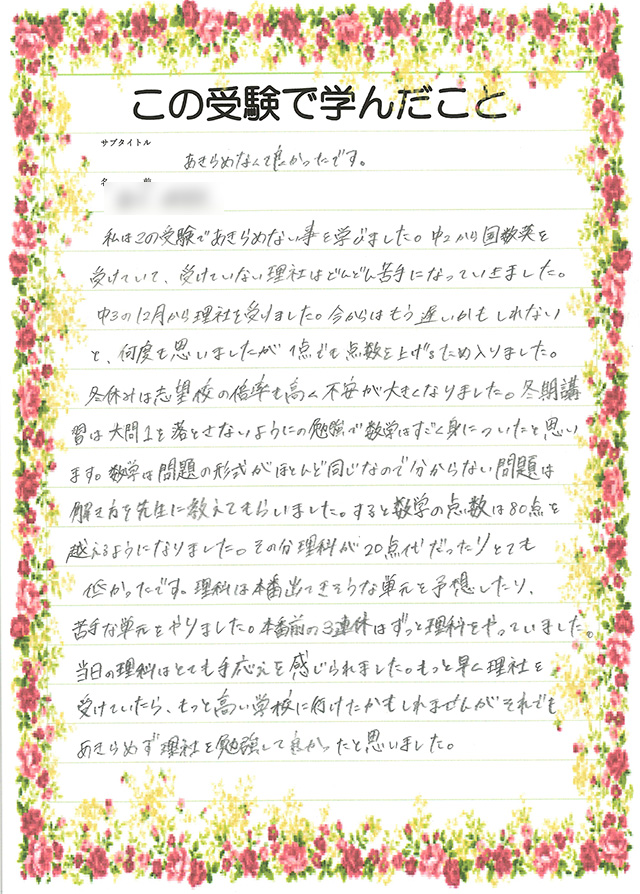 この受験で学んだこと
サブタイトル
あきらめなくて良かったです。
名 前
私はこの受験であきらめない事を学びました。中2から国数英を
受けていて、受けていない理社はどんどん苦手になっていきました。
中3の12月から理社を受けました。今からはもう遅いかもしれない
と、何度も思いましたが1点でも点数を上げるため入りました。
冬休みは志望校の倍率も高く不安が大きくなりました。冬期講
習は大問1を落とさないようにの勉強で数学はすごく身についたと思い
ます。数学は問題の形式がほとんど同じなので分からない問題は
解き方を先生に教えてもらいました。すると数学の点数は80点を
越えるようになりました。その分理科が20点代だったりとても
低かったです。理科は本番出てきそうな単元を予想したり、
苦手な単元をやりました。本番前の3連休はずっと理科をやっていました。
当日の理科はとても手応えを感じられました。もっと早く理社を
受けていたら、もっと高い学校に行けたかもしれませんがそれでも
あきらめず理社を勉強して良かったと思いました。